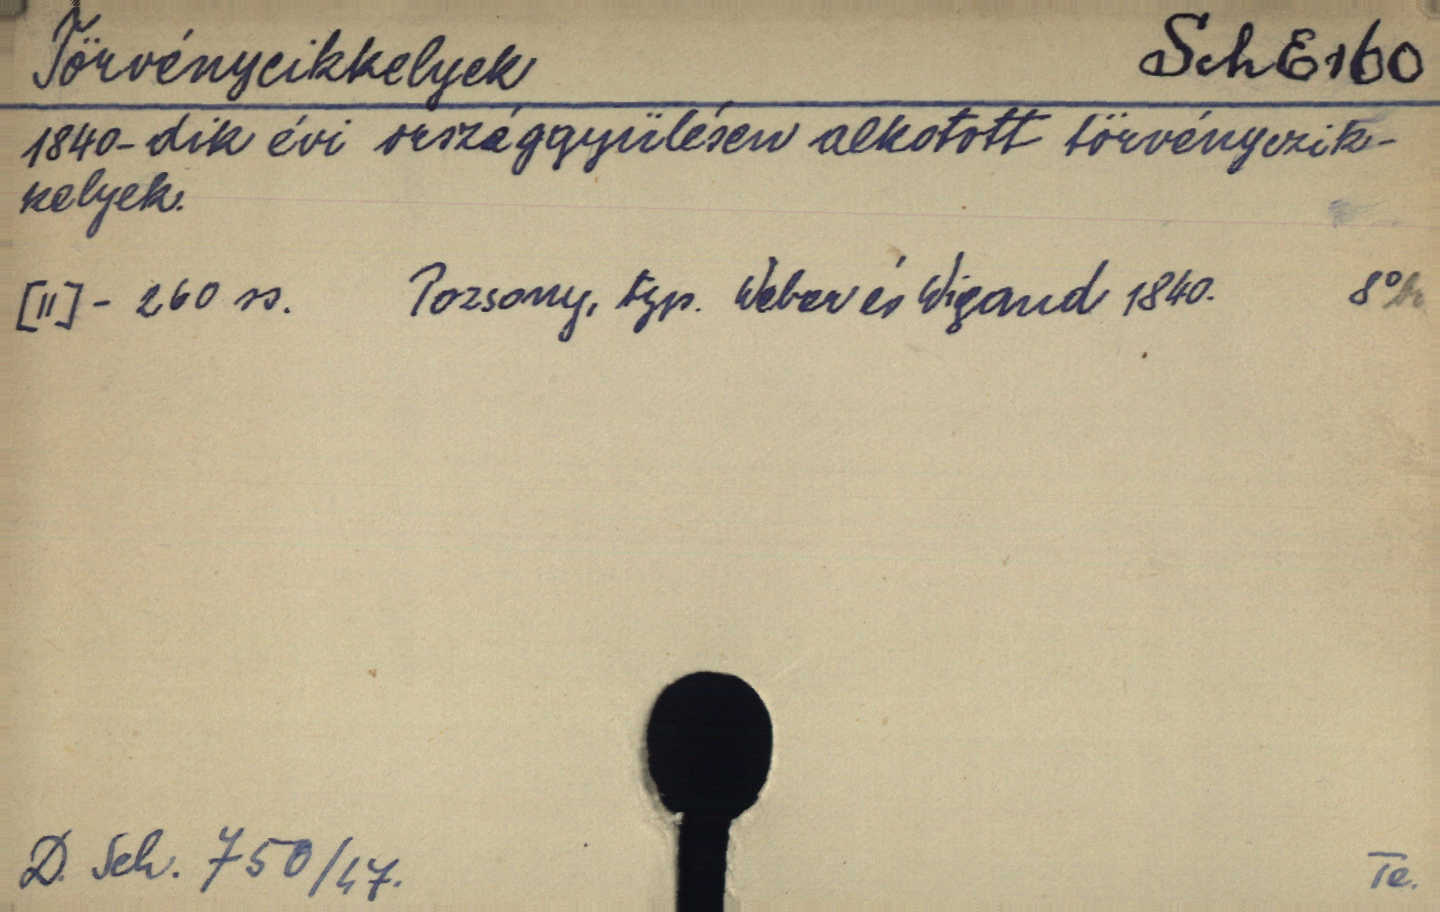 Törvénycikkelyek Sch E 160
1840-dik évi országgyülésen alkotott törvényczik-
kelyek.
[II] - 260 ss. Pozsony, typ. Weber és Wigand 1840. 8°
D. Sch. 750/47.
Te.